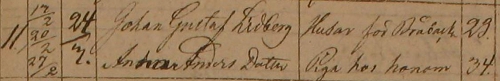 11. 13/2 20/2 27/2 24/3. Johan Gustaf Lidberg Husar för Bråbacka 23.
Anna Anders Dotter Piga hos honom 34.